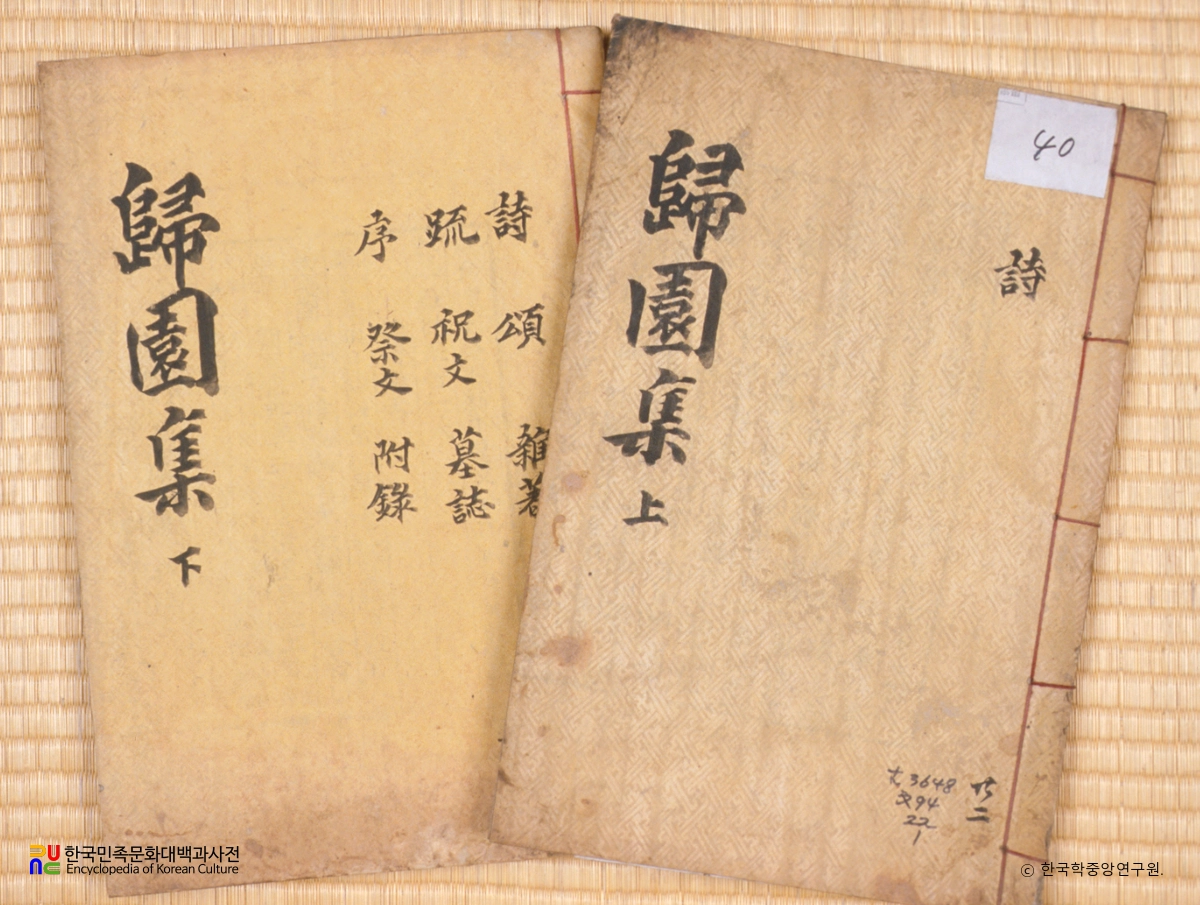 歸園集 下
詩 頌 雜著
疏 祝文 墓誌
序 祭文 附錄
歸園集 上
詩
40
共二
3648
94
22
1
한국민족문화대백과사전
Encyclopedia of Korean Culture
ⓒ 한국학중앙연구원.